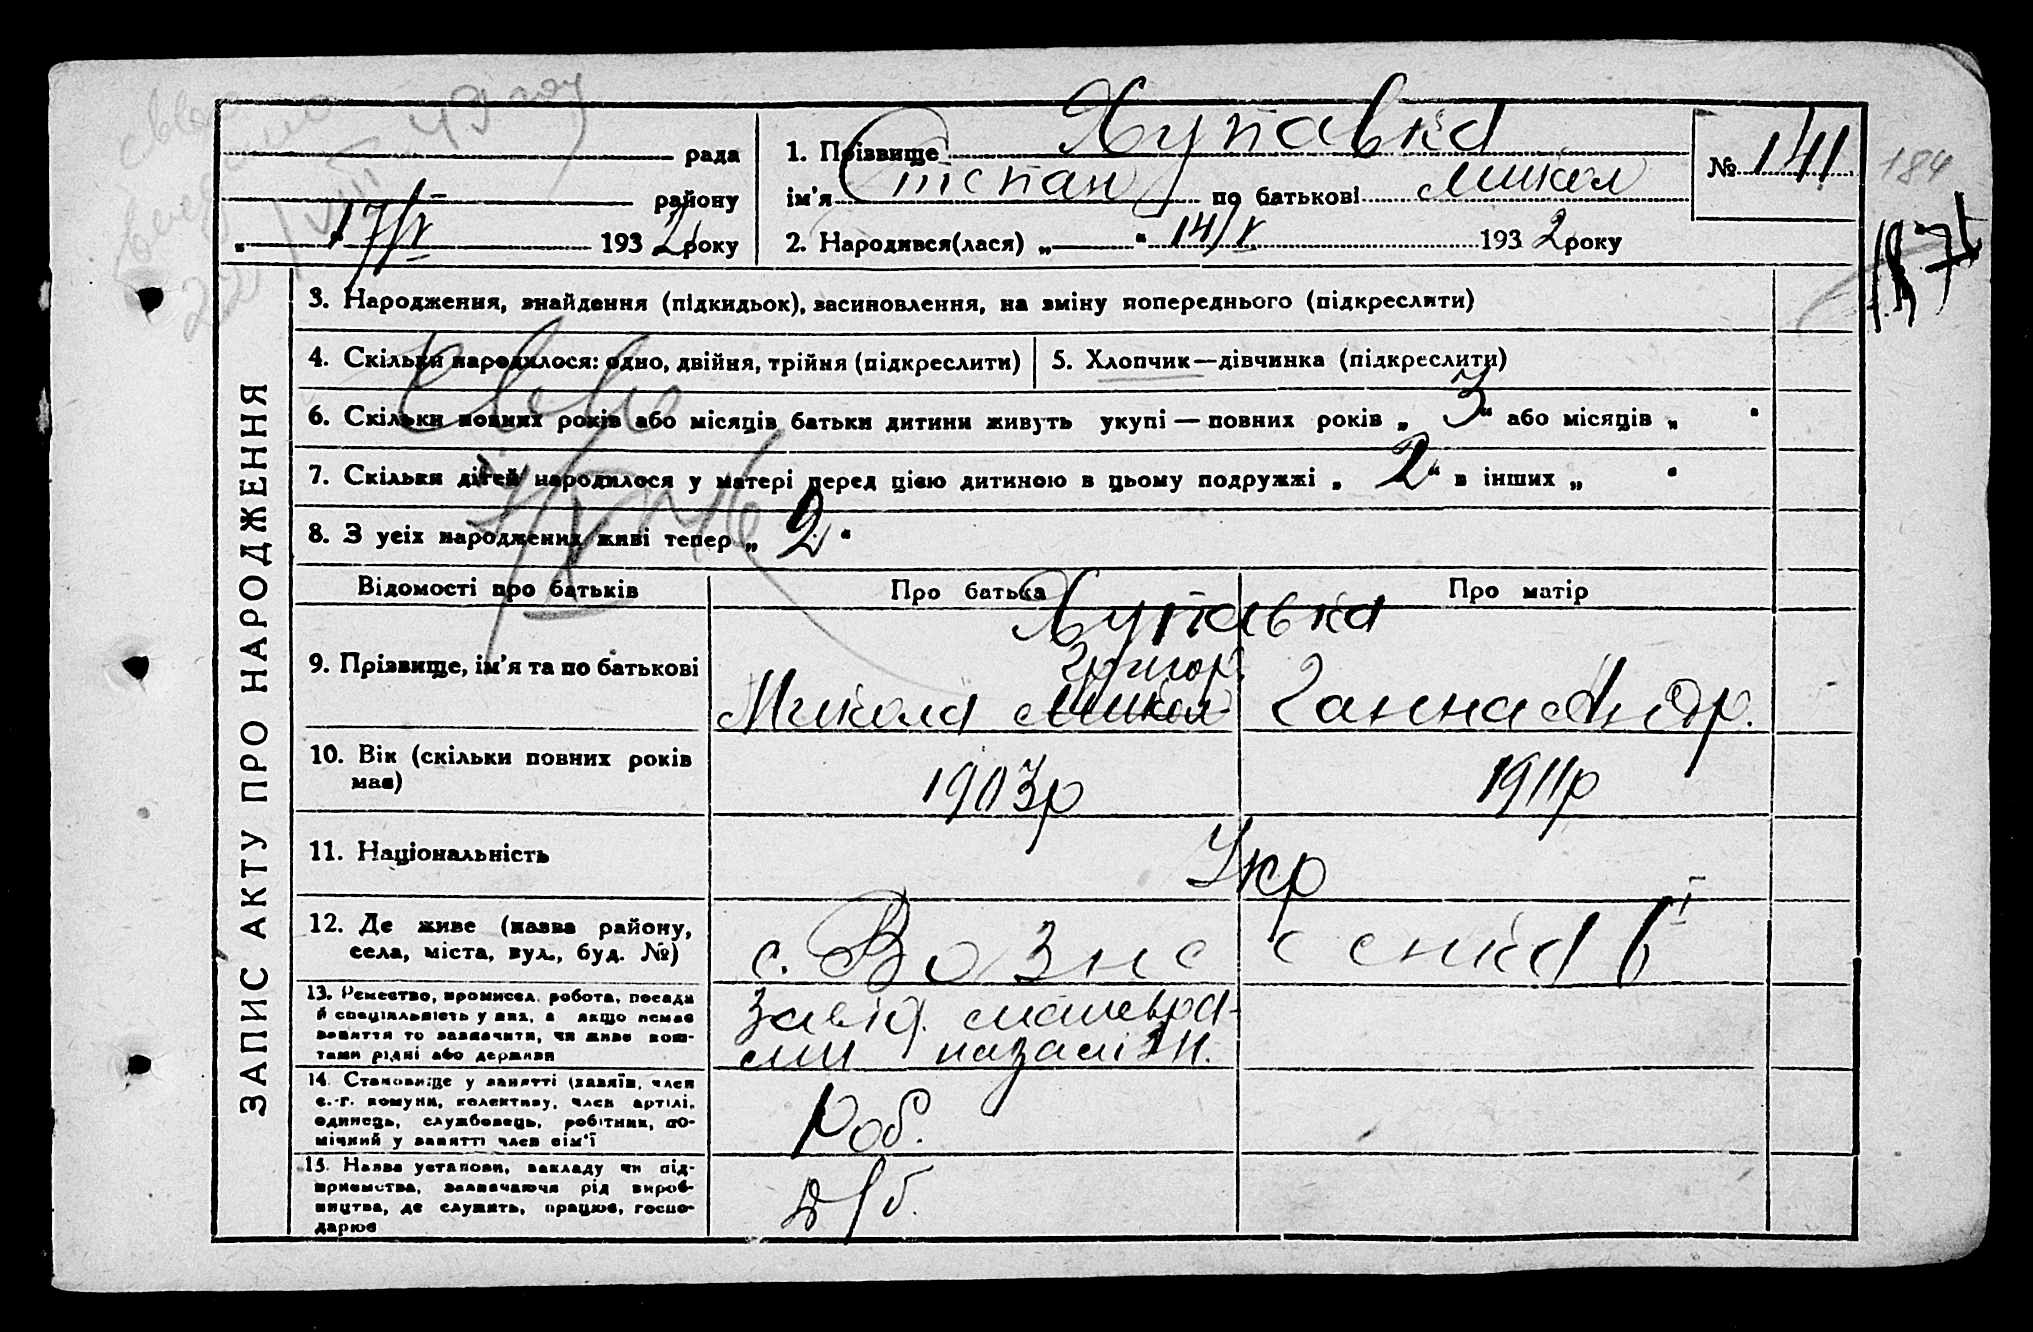 ЗАПИС АКТУ ПРО НАРОДЖЕННЯ
рада
району
„ “ 17/V 1932 року
1. Прізвище Хупавка
ім'я Степан по батькові Микол
2. Народився(лася) „ “ 14/V 1932 року
№ 141
184
3. Народження, знайдення (підкидьок), засиновлення, на зміну попереднього (підкреслити)
4. Скільки народилося: одно, двійня, трійня (підкреслити)
5. Хлопчик—дівчинка (підкреслити)
6. Скільки повних років або місяців батьки дитини живуть укупі — повних років „ 3 “ або місяців „ “
7. Скільки дітей народилося у матері перед цією дитиною в цьому подружжі „ 2 “ в інших „ “
8. З усіх народжених живі тепер „ 2 “
Відомості про батьків
Про батька
Про матір
Хупавка
9. Прізвище, ім'я та по батькові
Григор.
Микола Микол
Ганна Андр.
10. Вік (скільки повних років
має)
1903р
1911р
11. Національність
Укр
12. Де живе (назва району,
села, міста, вул., буд. №)
с. Вознесенка
13. Ремество, промисел, робота, посада
й спеціяльність у них, а якщо немає
заняття то зазначити, чи живе кош-
тами рідні або держави
14. Становище у занятті (хазяїн, член
с.-г. комуни, колективу, член артілі,
одинець, службовець, робітник, по-
мічний у занятті член сім'ї
Роб.
15. Назва установи, закладу чи під-
приємства, зазначаючи рід вироб-
ництва, де служить, працює, госпо-
дарює